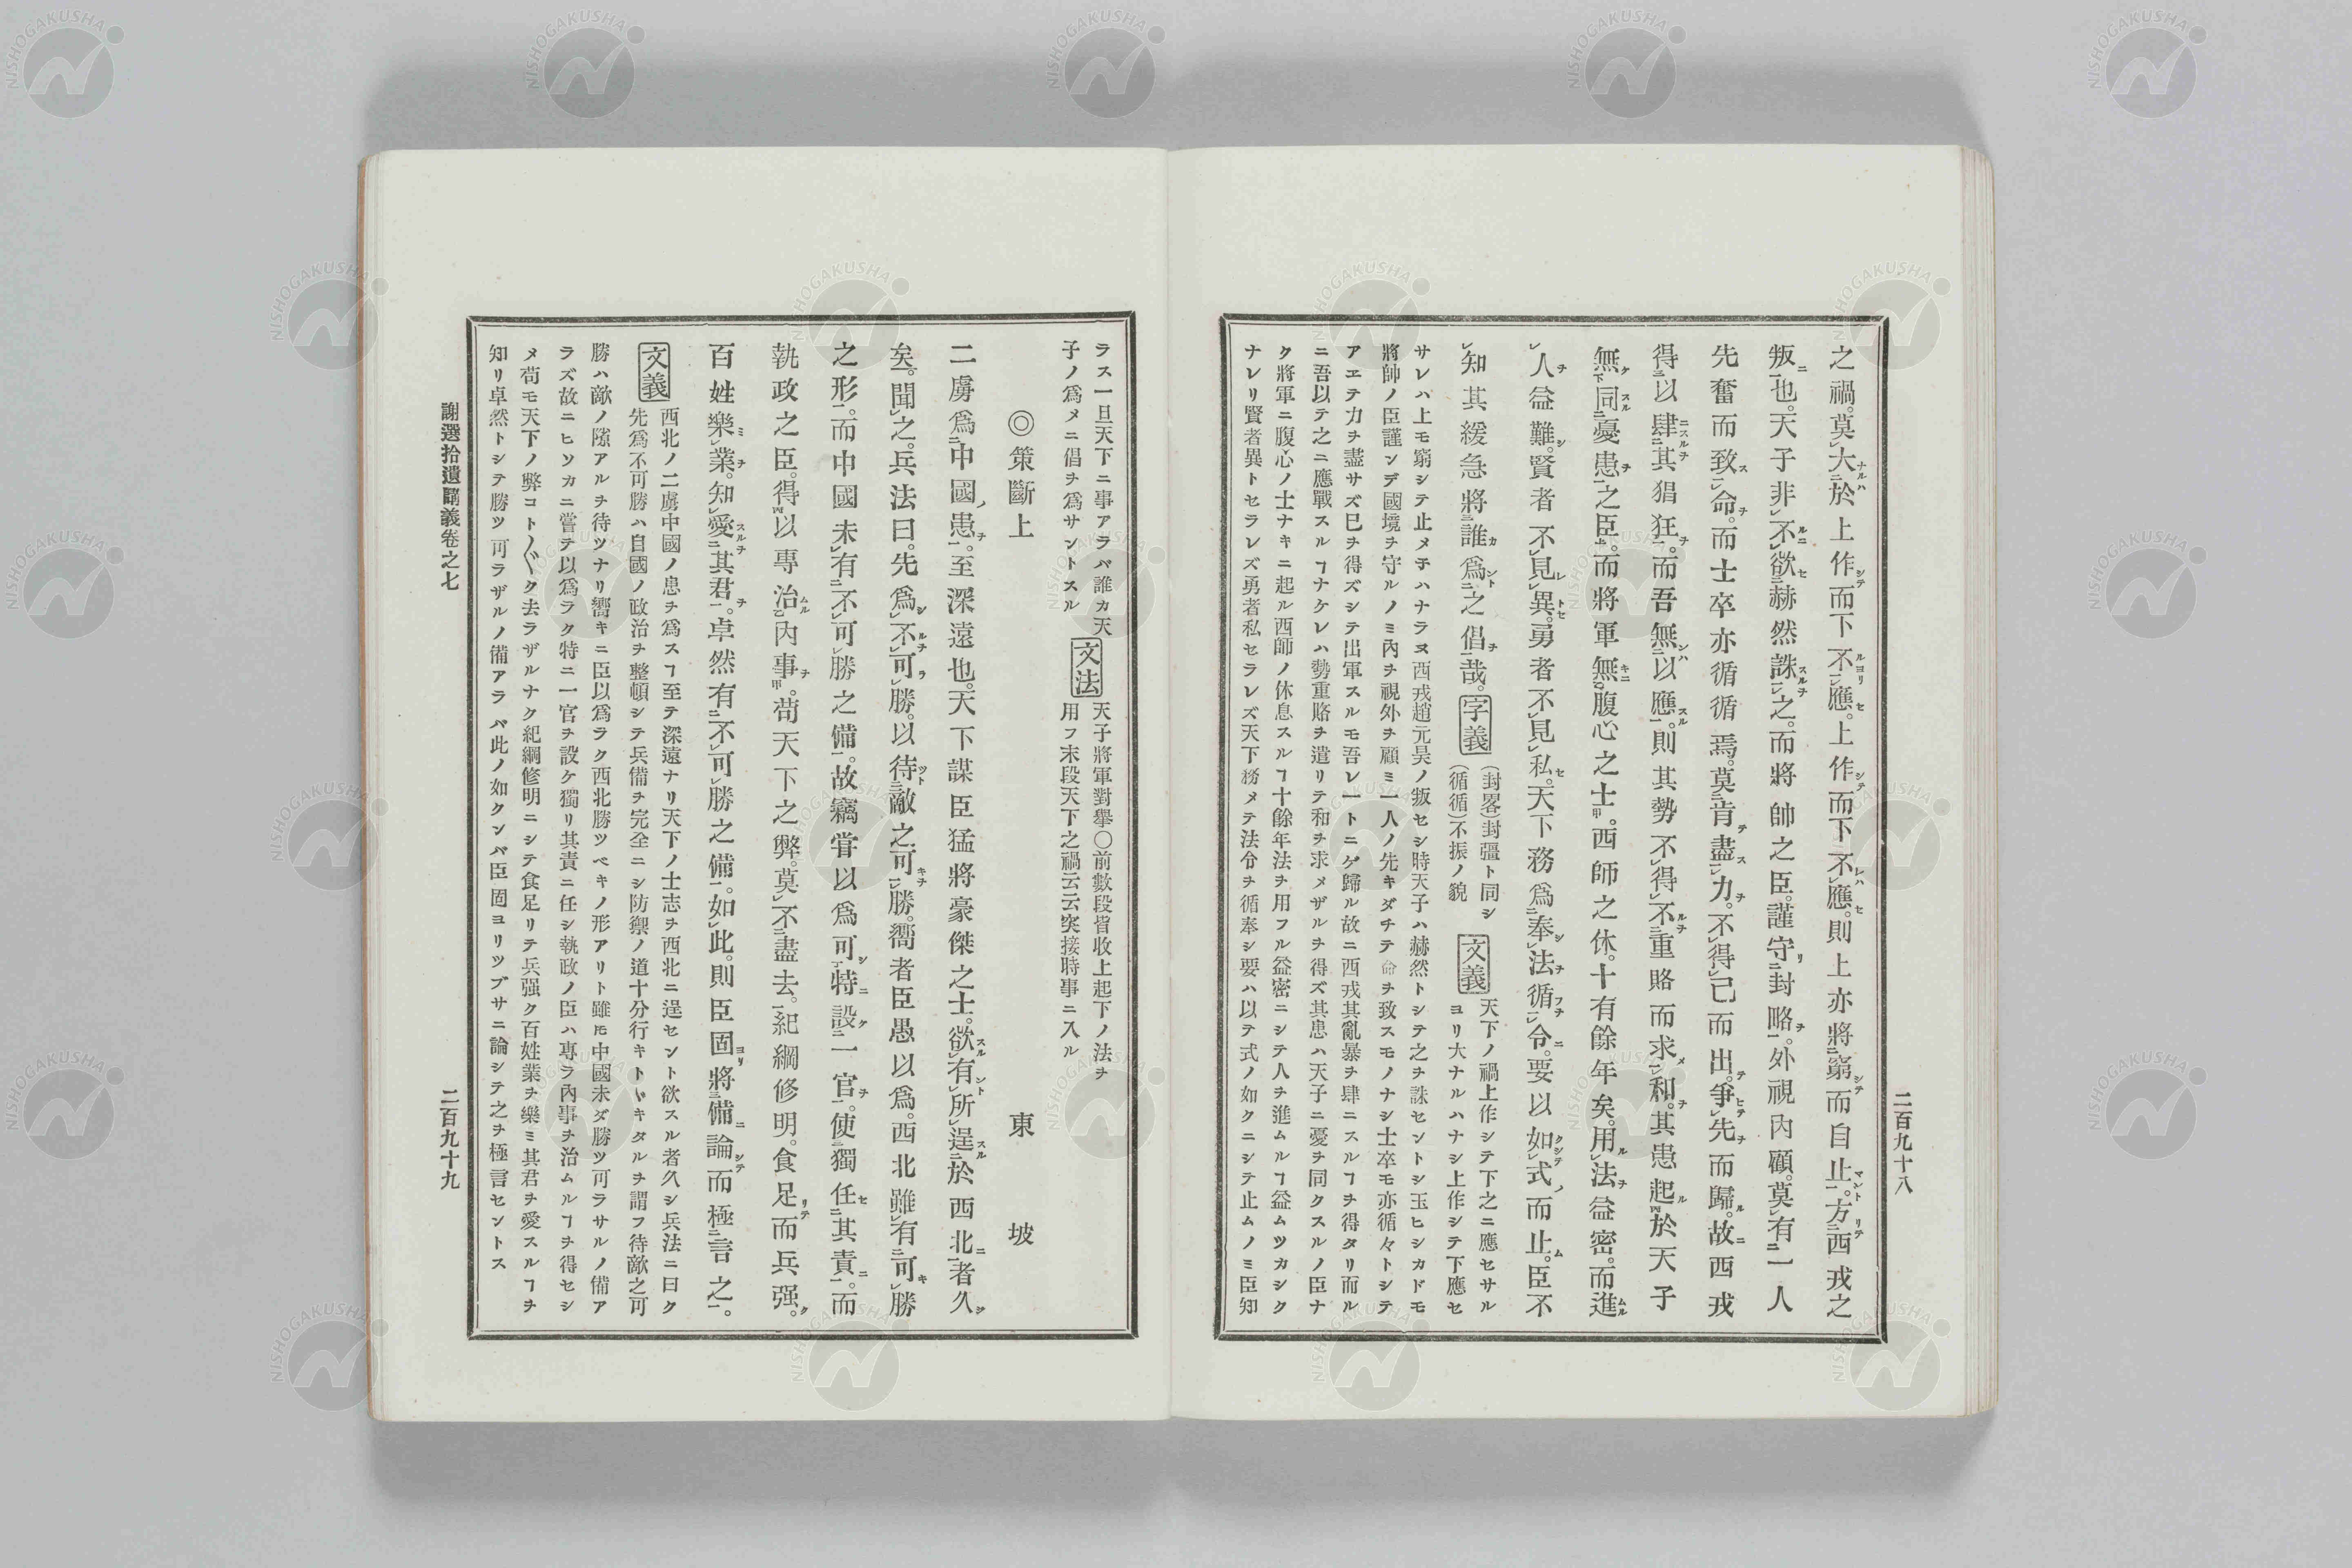 二百九十八
之禍。莫大於上作而下不應。上作而下不應。則上亦將窮而自止。方西戎之
叛也。天子非不欲赫然誅之。而將帥之臣。謹守封略。外視內顧。莫有一人
先奮而致命。而士卒亦循循焉。莫肯盡力。不得已而出。爭先而歸。故西戎
得以肆其猖狂。而吾無以應。則其勢不得不重賂而求和。其患起於天子
無同憂患之臣。而將軍無腹心之士。西師之休。十有餘年矣。用法益密。而進
人益難。賢者不見異。勇者不見私。天下務爲奉法循令。要以如式而止。臣不
知其緩急將誰爲之倡哉。字義(封畧)封疆ト同シ(循循)不振ノ貌 文義 天下ノ禍上作シテ下之ニ應セサルヨリ大ナルハナシ上作シテ下應セ
サレハ上モ窮シテ止メテハナラヌ西戎趙元昊ノ叛セシ時天子ハ赫然トシテ之ヲ誅セントシ玉ヒシカドモ
將帥ノ臣謹ンデ國境ヲ守ルノミ內ヲ視外ヲ顧ミ一人ノ先キダチテ命ヲ致スモノナシ士卒モ亦循々トシテ
アエテ力ヲ盡サズ已ヲ得ズシテ出軍スルモ吾レ一トニゲ歸ル故ニ西戎其亂暴ヲ肆ニスルヿヲ得タリ而ル
ニ吾以テ之ニ應戰スルヿナケレハ勢重賂ヲ遣リテ和ヲ求メザルヲ得ズ其患ハ天子ニ憂ヲ同クスルノ臣ナ
ク將軍ニ腹心ノ士ナキニ起ル西師ノ休息スルヿ十餘年法ヲ用フル益密ニシテ人ヲ進ムルヿ益ムツカシク
ナレリ賢者異トセラレズ勇者私セラレズ天下務メテ法令ヲ循奉シ要ハ以テ式ノ如クニシテ止ムノミ臣知
ラス一旦天下ニ事アラバ誰カ天
子ノ爲メニ倡ヲ爲サントスル
文法 天子將軍對擧〇前數段皆收上起下ノ法ヲ
用フ末段天下之禍云云突接時事ニ入ル
◎策斷上 東坡
二虜爲中國患。至深遠也。天下謀臣猛將豪傑之士。欲有所逞於西北者久
矣。聞之。兵法曰。先爲不可勝。以待敵之可勝。嚮者臣愚以爲。西北雖有可勝
之形。而中國未有不可勝之備。故竊甞以爲可特設一官。使獨任其責。而
執政之臣。得以專治內事。苟天下之弊。莫不盡去。紀綱修明。食足而兵强。
百姓樂業。知愛其君。卓然有不可勝之備。如此。則臣固將備論而極言之。
文義 西北ノ二虜中國ノ患ヲ爲スヿ至テ深遠ナリ天下ノ士志ヲ西北ニ逞セント欲スル者久シ兵法ニ曰ク
先爲不可勝ハ自國ノ政治ヲ整頓シテ兵備ヲ完全ニシ防禦ノ道十分行キトヾキタルヲ謂フ待敵之可
勝ハ敵ノ隙アルヲ待ツナリ嚮キニ臣以爲ラク西北勝ツベキノ形アリト雖モ中國未ダ勝ツ可ラサルノ備ア
ラズ故ニヒソカニ嘗テ以爲ラク特ニ一官ヲ設ケ獨リ其責ニ任シ執政ノ臣ハ專ラ內事ヲ治ムルヿヲ得セシ
メ苟モ天下ノ弊コト〴〵ク去ラザルナク紀綱修明ニシテ食足リテ兵强ク百姓業ヲ樂ミ其君ヲ愛スルヿヲ
知リ卓然トシテ勝ツ可ラザルノ備アラバ此ノ如クンバ臣固ヨリツブサニ論シテ之ヲ極言セントス
謝選拾遺講義卷之七
二百九十九